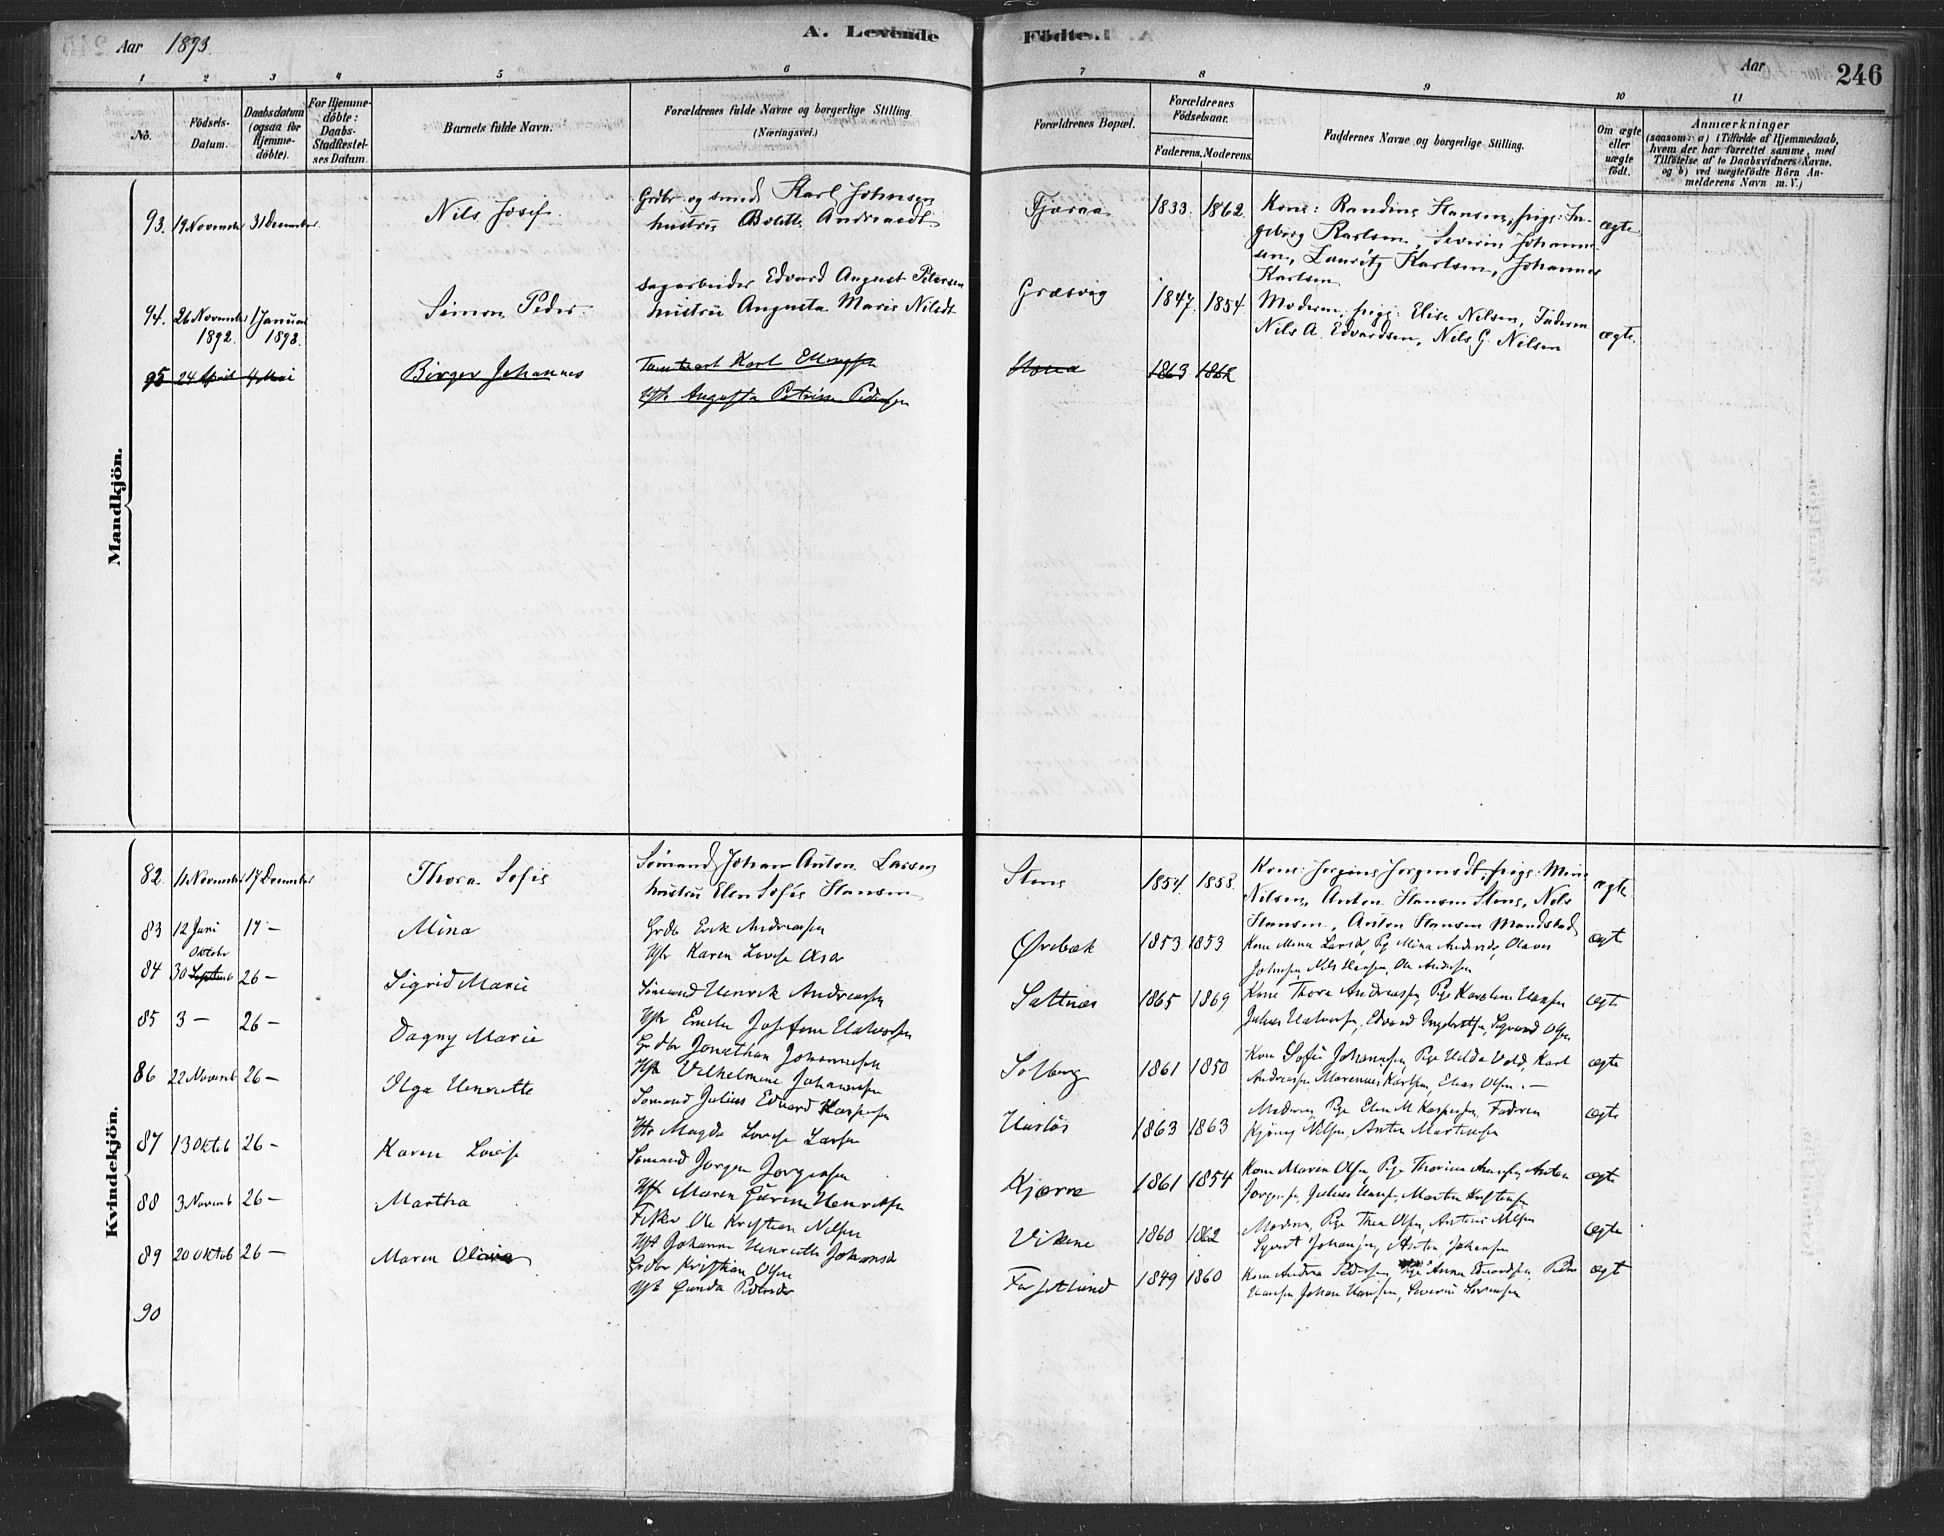 Aar 1893.
A. Levende
Födte.
Aar
246
1 2 3 4 5 6 7 8 9 10 11
No.
Födsels-
Datum.
Daabsdatum
(ogsaa for
Hjemme-
döbte).
For Hjemme-
döbte:
Daabs-
Stadfæstel-
ses Datum.
Barnets fulde Navn.
Forældrenes fulde Navne og borgerlige Stilling.
(Næringsvei.)
Forældrenes Bopæl.
Forældrenes
Födselsaar.
Faderens. Moderens.
Faddernes Navne og borgerlige Stilling.
Om ægte
eller
uægte
födt.
Anmærkninger
(saasom: a) i Tilfælde af Hjemmedaab,
hvem der har forrettet samme, med
Tilföielse af to Daabsvidners Navne,
og b) ved uægtefödte Börn An-
melderens Navn m. V.)
Mandkjön.
93. 19 November 31 December
Nils Josef.
Grdbr og smed Karl Johnsen
hustru Bolette Andreasdt.
Tjæraa 1833. 1862.
Kone: Randine Hansen, pige: In-
geborg Karlsen, Severin Johanne-
sen, Lauritz Karlsen, Johannes
Karlsen
ægte
94. 26 November 1 Januar
1892. 1893.
Simon Peder.
Sagarbeider Edvard August Petersen
hustru Augusta Marie Nilsdt
Græsvig 1847. 1854.
Moderen, pige: Elise Nilsen, Faderen
Nils A. Edvardsen, Nils G. Nilsen
ægte.
95 24 April 4 Mai
Birger Johannes
Karl
Augusta Petrine Pedersen
1863 1862
Kvindekjön.
82. 11 November 17 December
Thora Sofie
Sømand Johan Anton Larsen
hustru Elen Sofie Hansen
Stene 1854. 1858.
Kone: Jorgine Jorgensdt, pige: Mina
Nilsen, Anton Hansen Stene, Nils
Hansen, Anton Hansen Mandstad
ægte
83 12 Juni 17 —
Mina
Grdb Erik Andreassen
Karen Lovise
Ørebæk 1853 1853
Kone Mina Pige Mina
Nils Hansen, Ole Andersen
ægt
84 30 Septemb Oktober 26 —
Sigrid Marie
Sömand Henrik Andreassen
Emelie Josefine Halvorsen
1865 1869
Kone Thora Andreassen, Pige Karoline Hansen
Julius Halvorsen, Edvard Sigvard Olsen
ægte
85 3 — 26 —
Dagny Marie
Grdbr Jonathan Johannesen
Vilhelmine Johannesen
Solberg 1861 1850
Kone Sofie Johannesen, Pige Hilda Vold, Karl
Andreassen Karlsen, Elias Olsen. —
ægte
86 22 Novemb 26 —
Olga Henriette
Sömand Julius Edvard Kaspersen
Magda Lovise Larsen
1863 1863
Moderen, Pige Elen M Kaspersen, Faderen
Nilsen, Anton Martinsen
ægte
87 13 Oktob 26 —
Karen Lovise
Sömand Jörgen Jörgensen
Maren Henriksen
Kjærre 1861 1854
Kone Maren Olsen, Pige Anton
Jörgensen, Julius Hansen, Martin Kristensen
ægte
88 3 Novemb 26 —
Martha
Fisker Ole Kristian Nilsen
Johanne Henriette
Vikene 1860 1862
Moderen, Pige Thea Olsen, Antonie Nilsen
Johansen, Anton Johansen
ægte
89 20 Oktob 26 —
Maren Olava
Grdbr Kristian Olsen
Gunda
1849 1860
Kone Andrea Pedersen, Pige Anna Edvardsen, Peder
Hansen Johan Hansen, Severin Sörensen
ægt
90